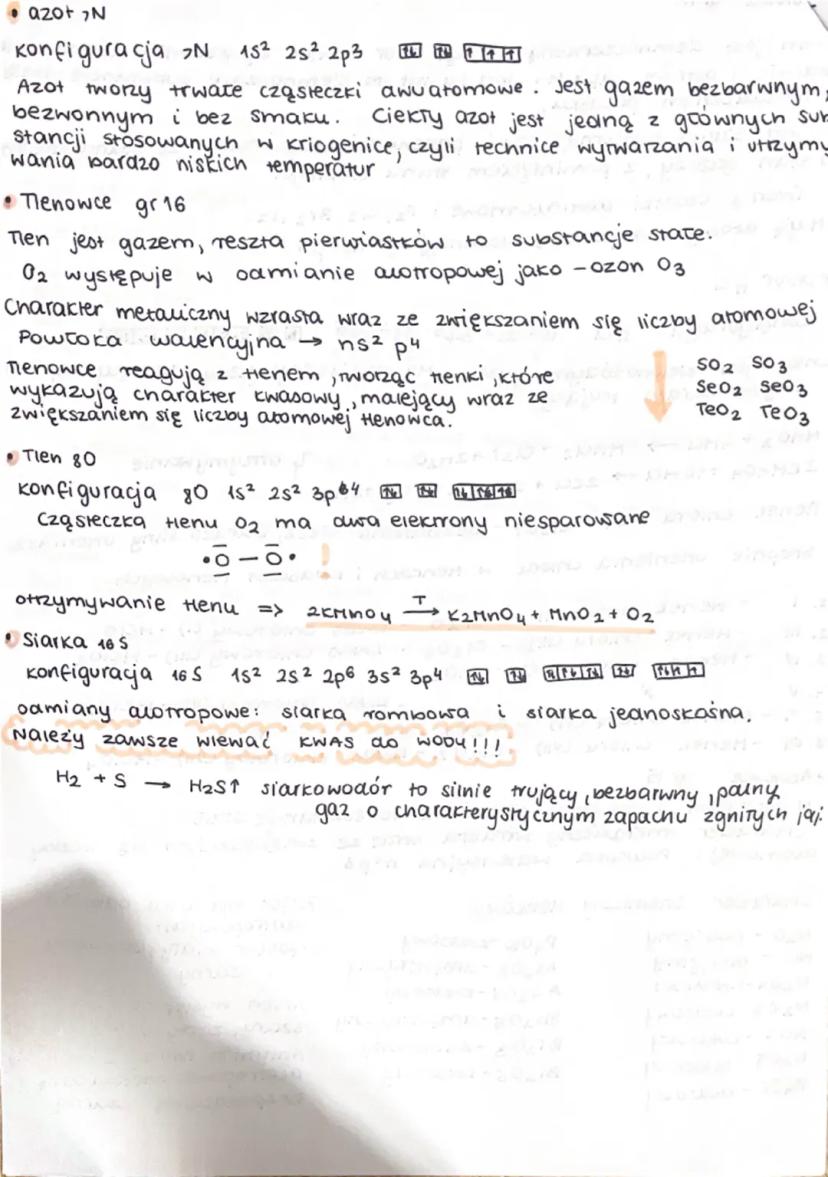 • azot ₇N
Konfiguracja ₇N 1s² 2s² 2p³ ↑↓ ↑↓ ↑ ↑ ↑
Azot tworzy trwałe cząsteczki dwuatomowe. Jest gazem bezbarwnym,
bezwonnym i bez smaku. Ciekły azot jest jedną z głównych sub
stancji stosowanych w kriogenice, czyli technice wytwarzania i utrzymy
wania bardzo niskich temperatur
• Tlenowce gr 16
Tlen jest gazem, reszta pierwiastków to substancje stałe.
O₂ występuje w odmianie alotropowej jako - ozon O₃
Charakter metaliczny wzrasta wraz ze zwiększaniem się liczby atomowej
Powłoka walencyjna → ns² p⁴
Tlenowce reagują z tlenem, tworząc tlenki, które
wykazują charakter kwasowy, malejący wraz ze
zwiększaniem się liczby atomowej tlenowca.
SO₂ SO₃
SeO₂ SeO₃
TeO₂ TeO₃
• Tlen ₈O
Konfiguracja ₈O 1s² 2s² 3p⁴ ↑↓ ↑↓
Cząsteczka tlenu O₂ ma dwa elektrony niesparowane
•O̅ – O̅• !
otrzymywanie tlenu => 2KMnO₄ T→ K₂MnO₄ + MnO₂ + O₂
• Siarka ₁₆S
Konfiguracja ₁₆S 1s² 2s² 2p⁶ 3s² 3p⁴
odmiany alotropowe: siarka rombowa i siarka jednoskośna.
Należy zawsze wlewać KWAS do WODY!!!
H₂ + S → H₂S↑ siarkowodór to silnie trujący, bezbarwny, palny
gaz o charakterystycznym zapachu zgnitych jaj.